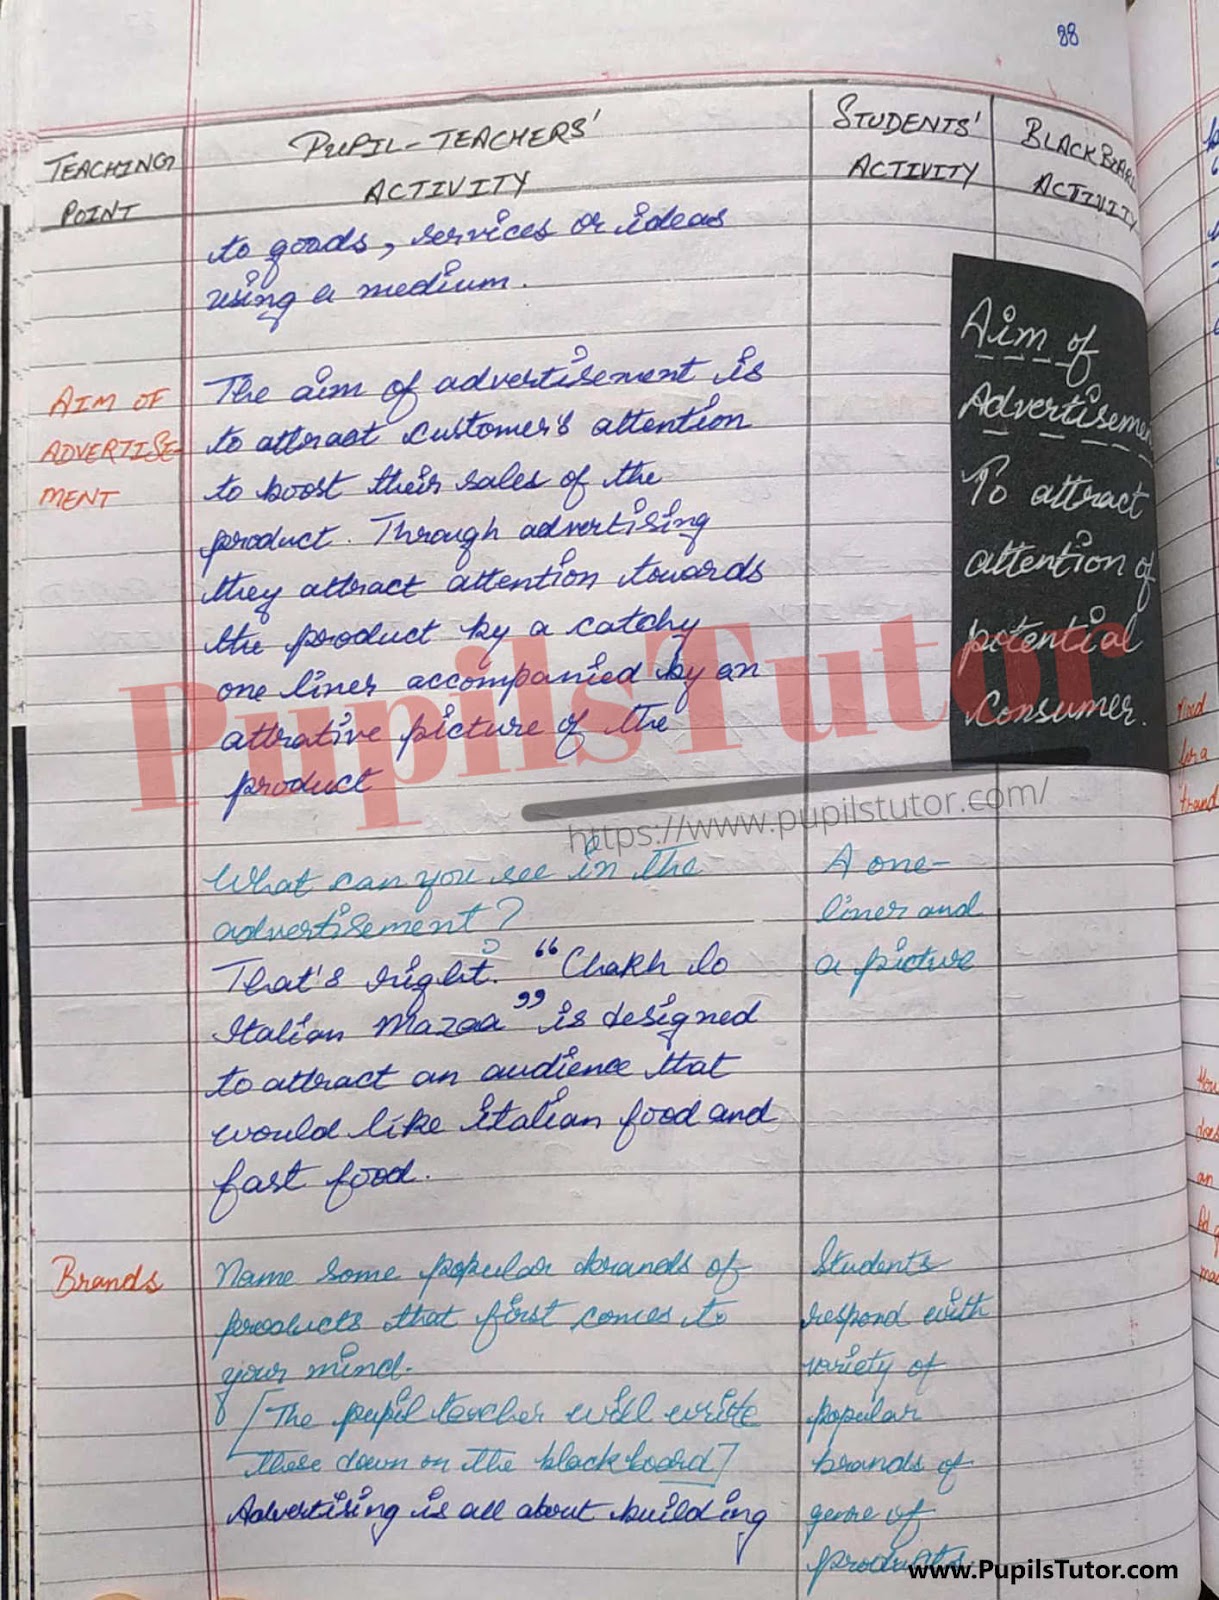 88
TEACHING
POINT
PUPIL-TEACHERS'
ACTIVITY
STUDENTS'
ACTIVITY
BLACKBOARD
ACTIVITY
to goods, services or ideas
using a medium.
AIM OF
ADVERTISE-
MENT
The aim of advertisement is
to attract customer's attention
to boost their sales of the
product. Through advertising
they attract attention towards
the product by a catchy
one liner accompanied by an
attrative picture of the
product
Aim of
Advertisement
To attract
attention of
potential
consumer.
PupilsTutor
https://www.pupilstutor.com/
What can you see in the
advertisement?
A one-
liner and
a picture
That's right. "Chakh lo
Italian Mazaa" is designed
to attract an audience that
would like italian food and
fast food.
Brands
Name some popular brands of
products that first comes to
your mind.
[The pupil teacher will write
these down on the blackboard]
Advertising is all about building
Students
respond with
variety of
popular
brands of
genre of
products.
www.PupilsTutor.com